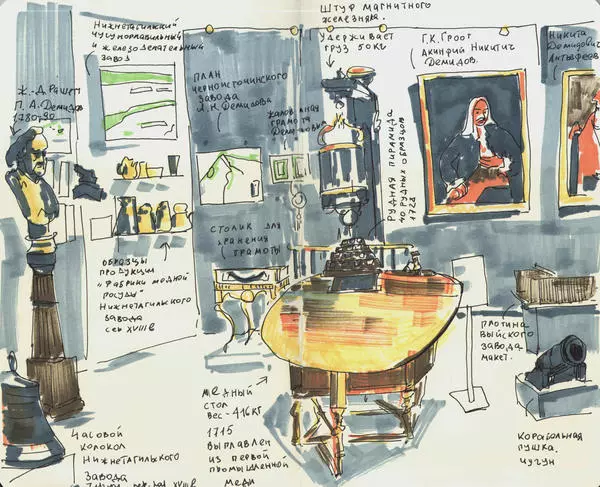 Нижнетагильский
чугуноплавильный
и железоделательный
завод
Ж.-Д. Рашет
П. А. Демидов
1780-90
План
Черноисточинского
завода
А. Н. Демидова
жалованная
грамота
Демидовым
штуф магнитного
железняка.
удерживает
груз 50 кг
Г. К. Гроот
Акинфий Никитич
Демидов.
Никита
Демидович
Антуфеев
Рудная пирамида
40 рудных образцов
1728
столик для
хранения
грамоты
образцы
продукции
"Фабрики медной
посуды"
Нижнетагильского
завода
сер XVIII в
медный
стол
вес - 416 кг
1715
выплавлен
из первой
промышленной
меди
Часовой
колокол
Нижнетагильского
завода
XVIII в
плотина
Выйского
завода
макет.
корабельная
пушка.
чугун